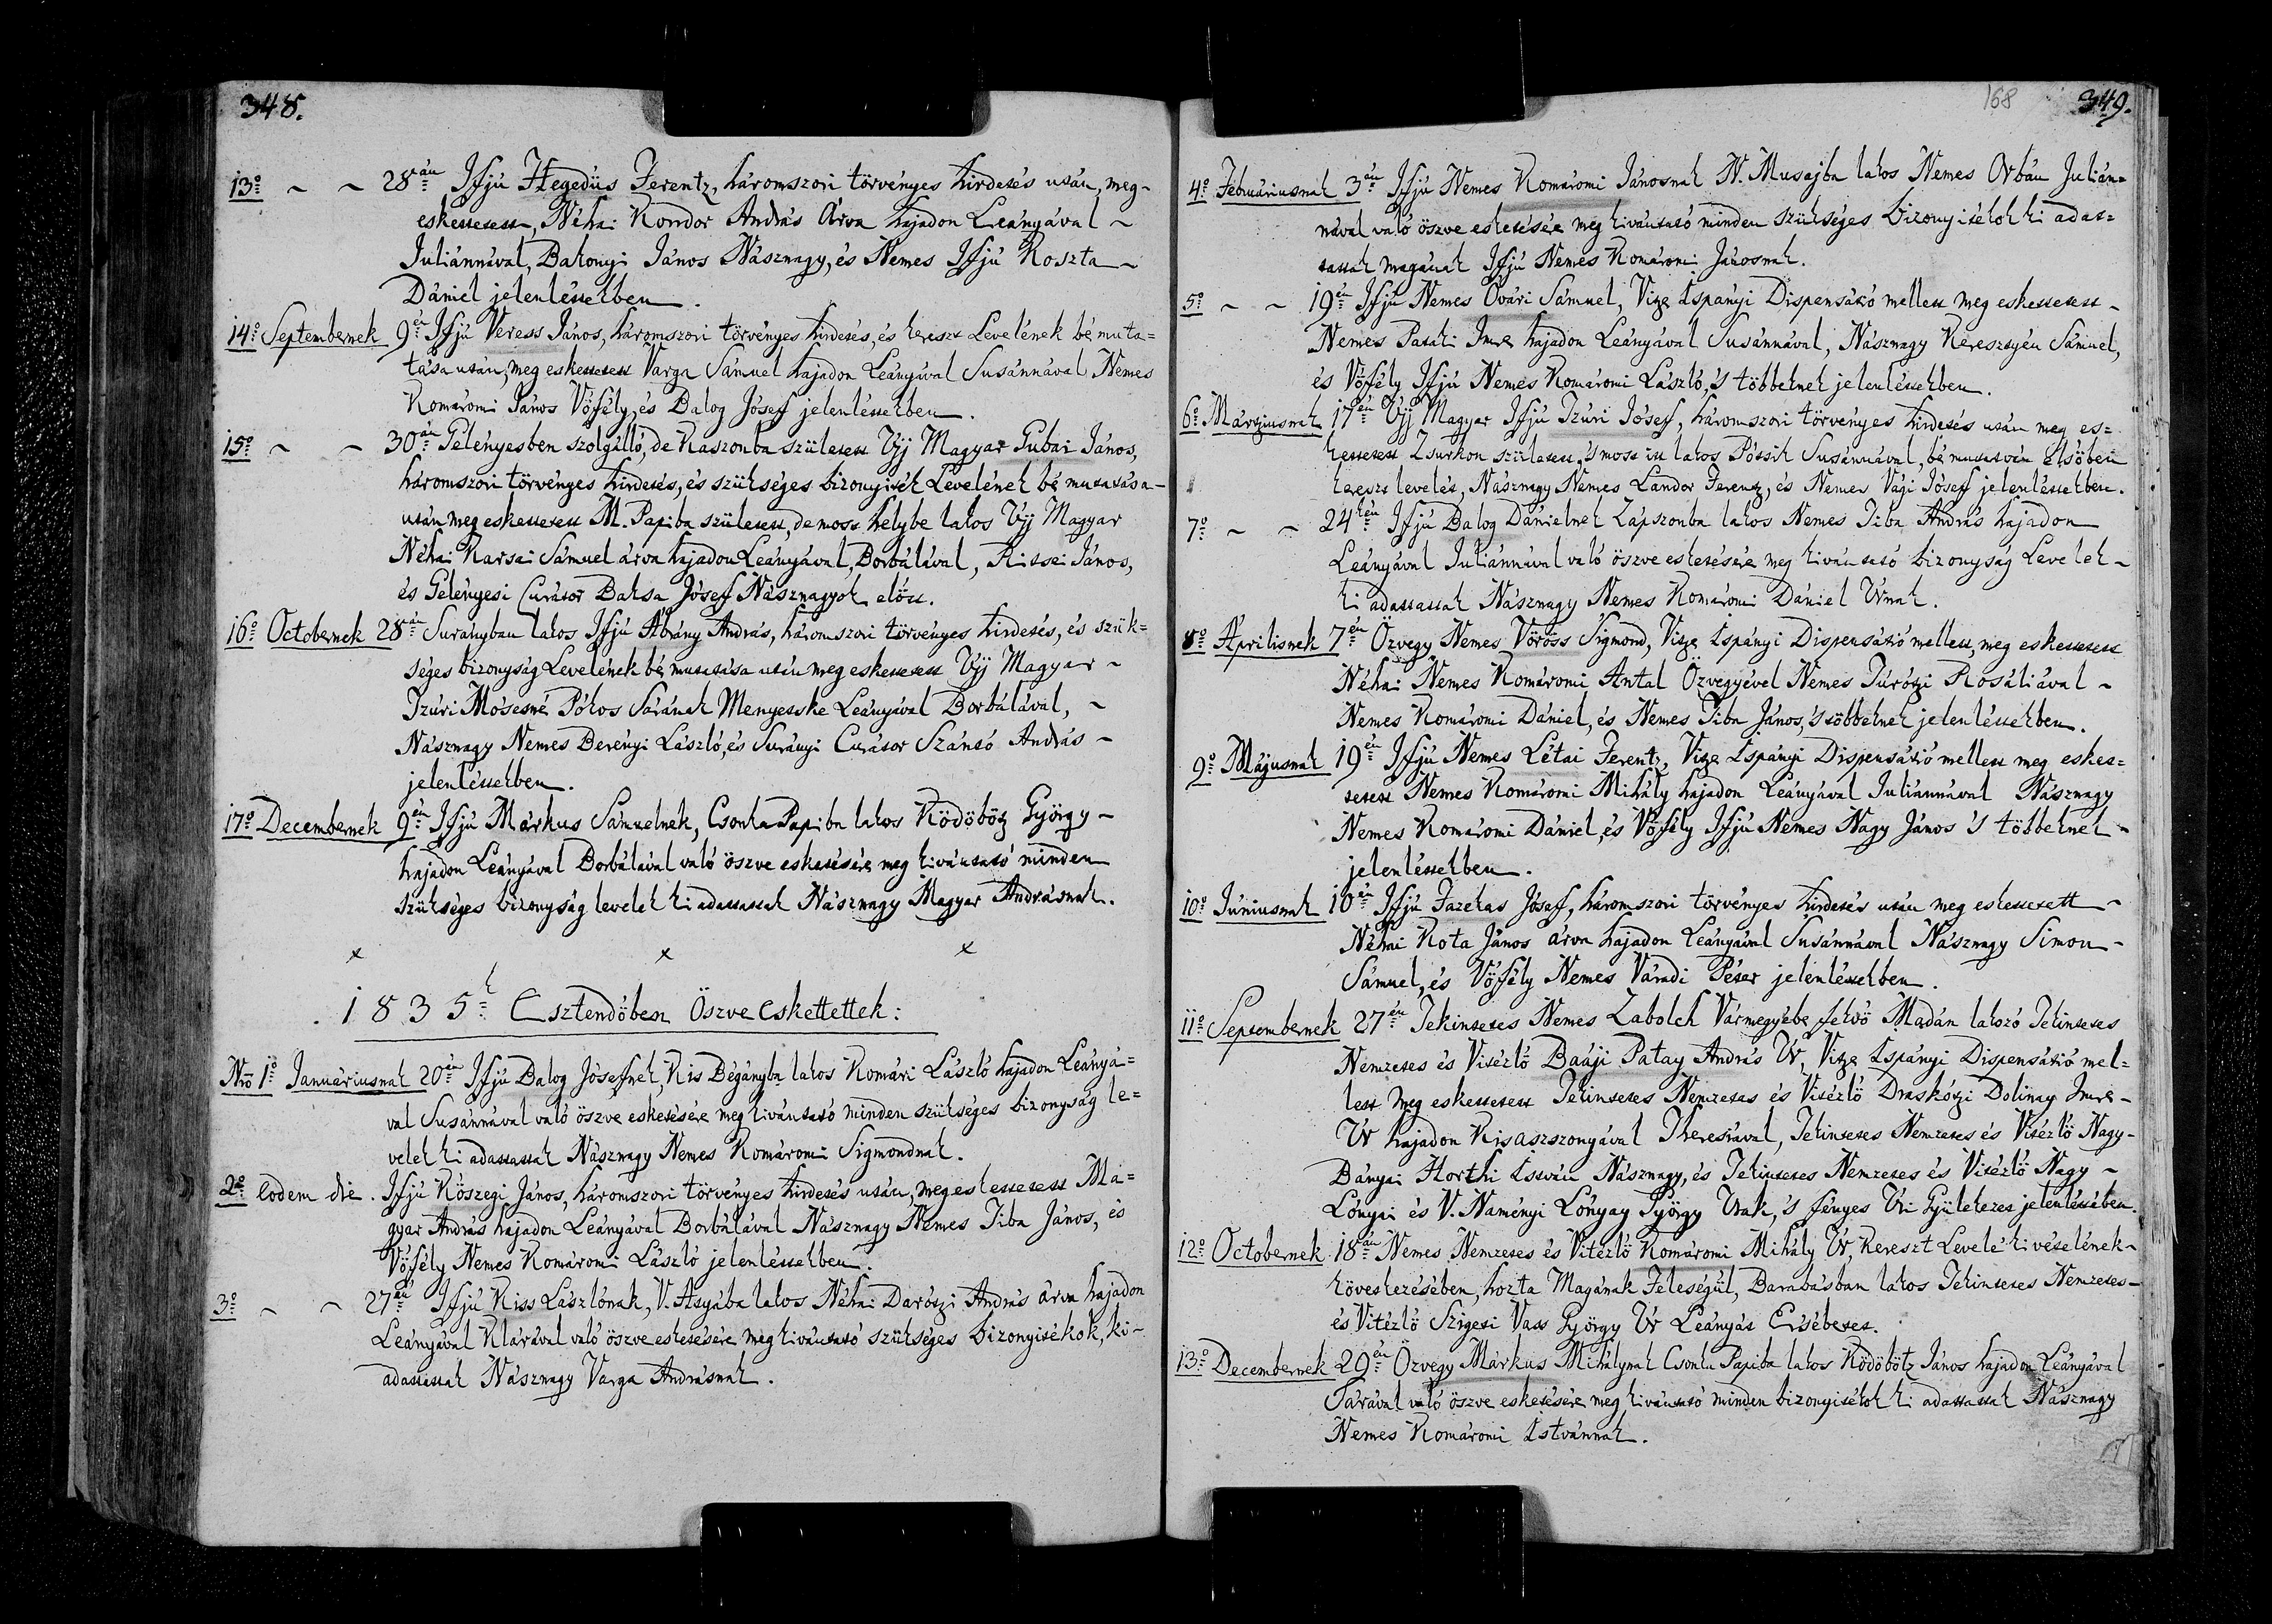 348.
13º ~ ~ 28án Ifjú Hegedüs Ferentz, háromszori törvényes hirdetés után, meg-
eskettetett, Néhai Kondor András Árva hajadon Leányával ~
Juliánnával, Bakonyi János Násznagy, és Nemes Ifjú Koszta ~
Dániel jelenléttekben.
14º Septembernek 9én Ifjú Veress János, háromszori törvényes hirdetés, és kereszt Levelének bé muta=
tása után, meg eskettetett Varga Sámuel hajadon Leányával Susánnával Nemes
Komáromi János Vőfély, és Balog Jósef jelenléttekben.
15º ~ ~ 30án Gelényesben szolgálló, de Kaszonba született Ujj Magyar Gubai János,
háromszori törvényes hirdetés, és szükséges bizonyiték Levelének bé mutatása -
után meg eskettetett M. Papiba született, de most helybe lakos Ujj Magyar
Néhai Karsai Sámuel árva hajadon Leányával, Borbálával, Kissei János,
és Gelényesi Curátor Baksa Jósef Násznagyok előtt.
16º Octobernek 28án Surányban lakos Ifjú Ábrány András, háromszori törvényes hirdetés, és szük=
séges bizonyság Levelének bé mutatása után meg eskettetett Ujj Magyar ~
Izúri Mósesné Pókos Sárának Menyetske Leányával Borbálával, ~
Násznagy Nemes Berényi László, és Surányi Curátor Szántó András ~
jelenléttekben.
17º Decembernek 9én Ifjú Márkus Sámuelnek, Csonka Papiba lakos Ködöbötz György ~
hajadon Leányával Borbálával való öszve esketésére meg kivántató minden
szükséges bizonyság levelek ki adattattak Násznagy Magyar Andrásnak.
x x x
1835k Esztendőben Öszve Eskettettek:
Nro 1º Januáriusnak 20án Ifjú Balog Jósefnek, Kis Bégányba lakos Komári László hajadon Leányá=
val Susánnával való öszve esketésére meg kivántató minden szükséges bizonyság le=
velek ki adattattak Násznagy Nemes Komáromi Sigmondnak.
2º eodem die. Ifjú Kőszegi János, háromszori törvényes hirdetés után, meg eskettetett Ma=
gyar András hajadon Leányával Borbálával Násznagy Nemes Tiba János, és
Vőfély Nemes Komáromi László jelenléttekben.
3º ~ ~ 27án Ifjú Kiss Lászlónak, V. Atyába lakos Néhai Darótzi András árva hajadon
Leányával Klárával való öszve esketésére meg kivántató szükséges bizonyitékok, ki-
adattattak Násznagy Varga Andrásnak.
168 349.
4º Februáriusnak 3án Ifjú Nemes Komáromi Jánosnak N. Musajba lakos Nemes Orbán Julián=
nával való öszve esketésére meg kivántató minden szükséges bizonyitékok ki adat=
tattak magának Ifjú Nemes Komáromi Jánosnak.
5º ~ ~ 19én Ifjú Nemes Óvári Sámuel, Vitze Ispányi Dispensátzió mellett meg eskettetett ~
Nemes Pataki Imre hajadon Leányával Susánnával, Násznagy Keresztyén Sámuel,
és Vőfély Ifjú Nemes Komáromi László, 's többeknek jelenléttekben.
6º Mártziusnak 17én Ujj Magyar Ifjú Izúri Jósef, háromszori törvényes hirdetés után meg es=
kettetett Zsurkon született, 's most itt lakos Póssik Susánnával, bé mutatván Elsőben
kereszt levelét, Násznagy Nemes Landor Ferentz, és Nemes Vági Jósef jelenléttekben.
7º ~ ~ 24kén Ifjú Balog Dánielnek Zápszonba lakos Nemes Tiba András hajadon
Leányával Juliánnával való öszve esketésére meg kivántató bizonyság Levelek ~
ki adattattak Násznagy Nemes Komáromi Dániel Urnak.
8º Áprilisnek 7én Özvegy Nemes Vörös Sigmond, Vitze Ispányi Dispensátzió mellett, meg eskettetett
Néhai Nemes Komáromi Antal Özvegyével Nemes Túrótzi Rosáliával ~
Nemes Komáromi Dániel, és Nemes Tiba János, 's többeknek jelenléttekben.
9º Májusnak 19én Ifjú Nemes Létai Ferentz, Vitze Ispányi Dispensátzió mellett meg esket=
tetett Nemes Komáromi Mihály hajadon Leányával Juliánnával Násznagy
Nemes Komáromi Dániel, és Vőfély Ifjú Nemes Nagy János 's többeknek -
jelenléttekben.
10º Júniusnak 10én Ifjú Fazekas Jósef, háromszori törvényes hirdetés után meg eskettetett ~
Néhai Kota János árva hajadon Leányával Susánnával Násznagy Simon -
Sámuel, és Vőfély Nemes Váradi Péter jelenléttekben.
11º Septembernek 27én Tekintetes Nemes Zabolch Vármegyébe fekvő Madán lakozó Tekintetes
Nemzetes és Vitézlő Baáji Patay András Úr, Vitze Ispányi Dispensátzió mel=
lett meg eskettetett Tekintetes Nemzetes és Vitézlő Draskótzi Dolinay Imre -
Úr hajadon Kisaszszonyával Theresiával, Tekintetes Nemzetes és Vitézlő Nagy-
Bányai Horthi István Násznagy, és Tekintetes Nemzetes és Vitézlő Nagy ~
Lónyai és V. Naményi Lónyay György Urak, 's fényes Úri Gyülekezet jelenlétében.
12º Octobernek 18án Nemes Nemzetes és Vitézlő Komáromi Mihály Úr, Kereszt Levelé kivételének ~
következésében, hozta Magának Feleségűl, Barabásban lakos Tekintetes Nemzetes -
és Vitézlő Szigeti Vass György Úr Leányát Ersébetet.
13º Decembernek 29én Özvegy Márkus Mihálynak Csonka Papiba lakos Ködöbötz János hajadon Leányával
Sárával való öszve esketésére meg kivántató minden bizonyitékok ki adattattak Násznagy
Nemes Komáromi Istvánnak.